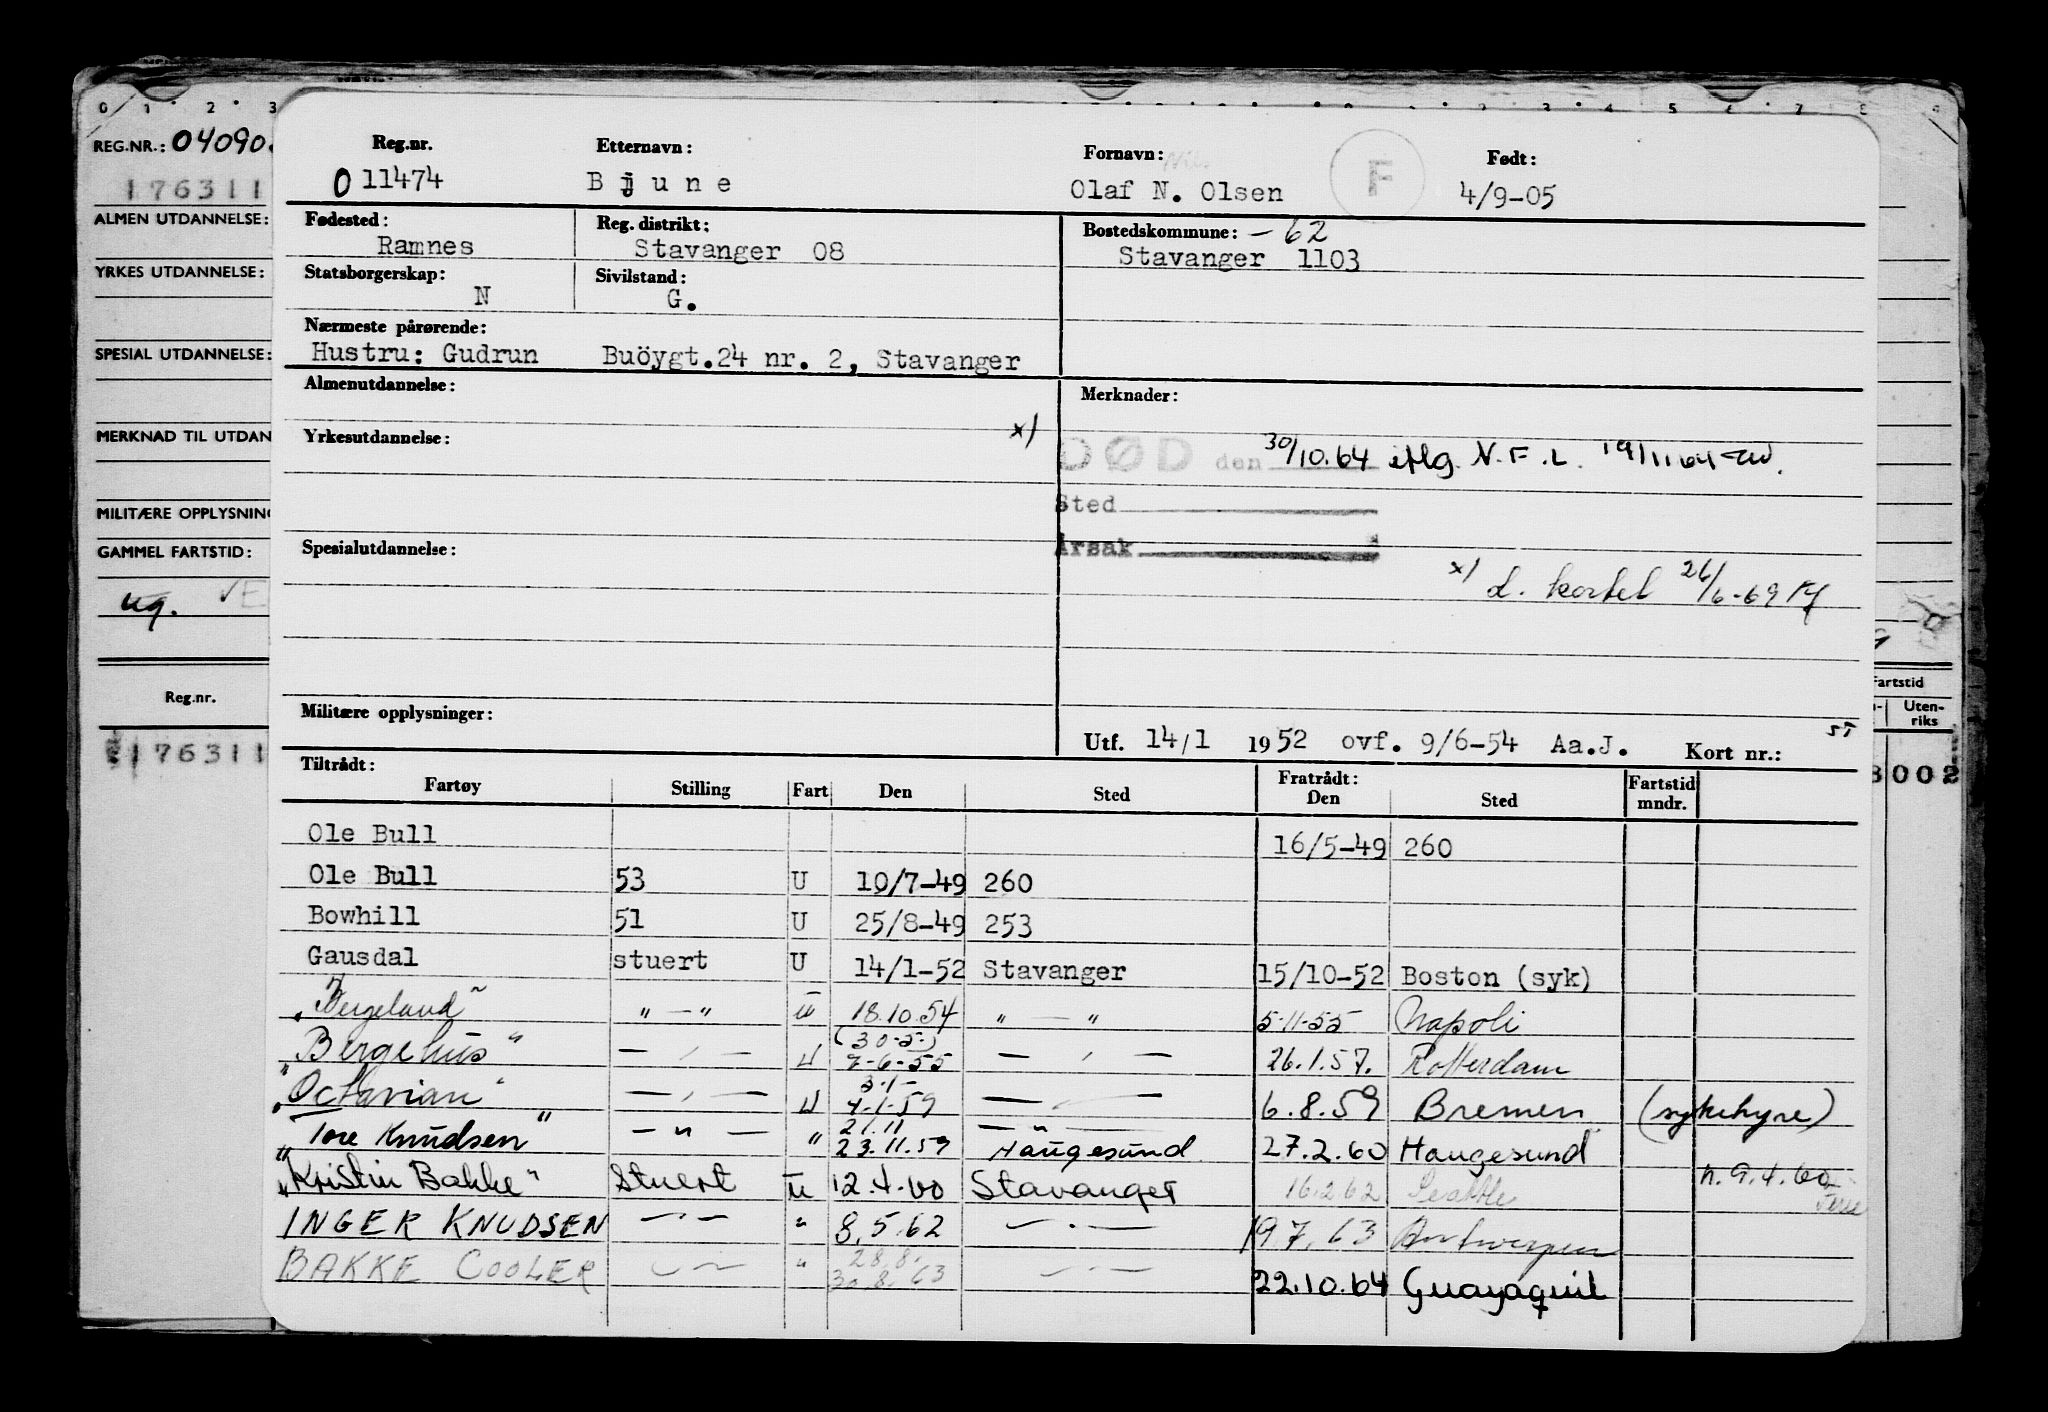 0 1 2 3 2 3 4 5 6 7 8 9
REG.NR.: 04090
176311
ALMEN UTDANNELSE:
YRKES UTDANNELSE:
SPESIAL UTDANNELSE:
MERKNAD TIL UTDAN
MILITÆRE OPPLYSNING
GAMMEL FARTSTID:
ug. VE
Reg.nr.
176311
Reg.nr. Etternavn: Fornavn: F Født:
0 11474 Bjune Olaf N. Olsen 4/9-05
Fødested: Reg. distrikt: Bostedskommune: - 62
Ramnes Stavanger 08 Stavanger 1103
Statsborgerskap: Sivilstand:
N G.
Nærmeste pårørende:
Hustru: Gudrun Buöygt.24 nr. 2, Stavanger
Almenutdannelse: Merknader:
Yrkesutdannelse: x)
DØD den 30/10.64 iflg. N.F.L. 19/11 64
Sted
Årsak
Spesialutdannelse:
x) d. kortet 26/6-69
Militære opplysninger:
Utf. 14/1 1952 ovf. 9/6-54 Aa.J. Kort nr.:
Fartstid
Uten-
riks
3002
Tiltrådt: Fratrådt: Fartstid
Fartøy Stilling Fart Den Sted Den Sted mndr.
Ole Bull 16/5-49 260
Ole Bull 53 U 10/7-49 260
Bowhill 51 U 25/8-49 253
Gausdal stuert U 14/1-52 Stavanger 15/10-52 Boston (syk)
"Bergeland" " — " u 18.10.54 " — " 5-11-55 Napoli
(30-5-)
"Bergehus" — " — U 7-6-55 — " — 26.1.57. Rotterdam
3-1-
"Octavian" — " — U 4-1-59 — " — 6.8.59 Bremen (sykehyre)
21.11
"Tore Knudsen" — " — " 23.11.59 Haugesund 27.2.60 Haugesund
"Kristin Bakke" Stuert u 12.4.60 Stavanger 16.2.62 Seattle n. 9.4.60
INGER KNUDSEN — " — " 8.5.62 — " — 19.7.63 Antwerpen
28.8.
BAKKE COOLER — " — " 30.8.63 — " — 22.10.64 Guayaquil